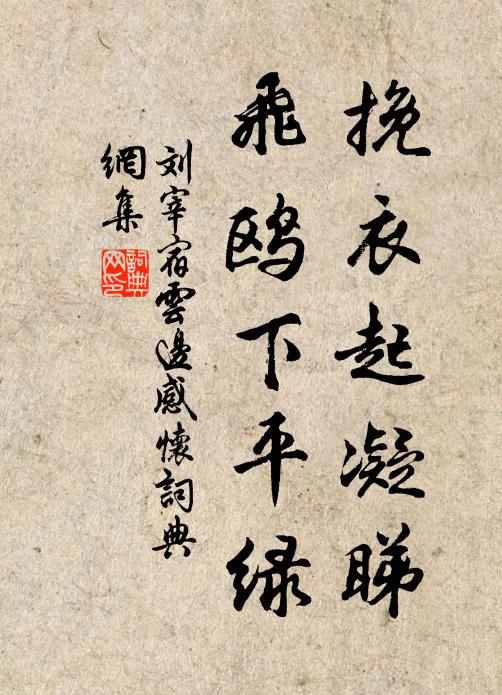 挽衣起凝睇
飛鸥下平緑
刘宰宿雲邊感懷詞典
網集
詞典
网印